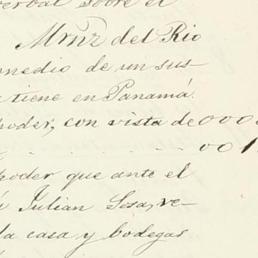 verbal sobre el
Mrnz del Rio
medio de un sus
tiene en Panamá.
poder, con vista de 000
001
poder que ante el
Julian Sosa, ve-
la casa y bodegas